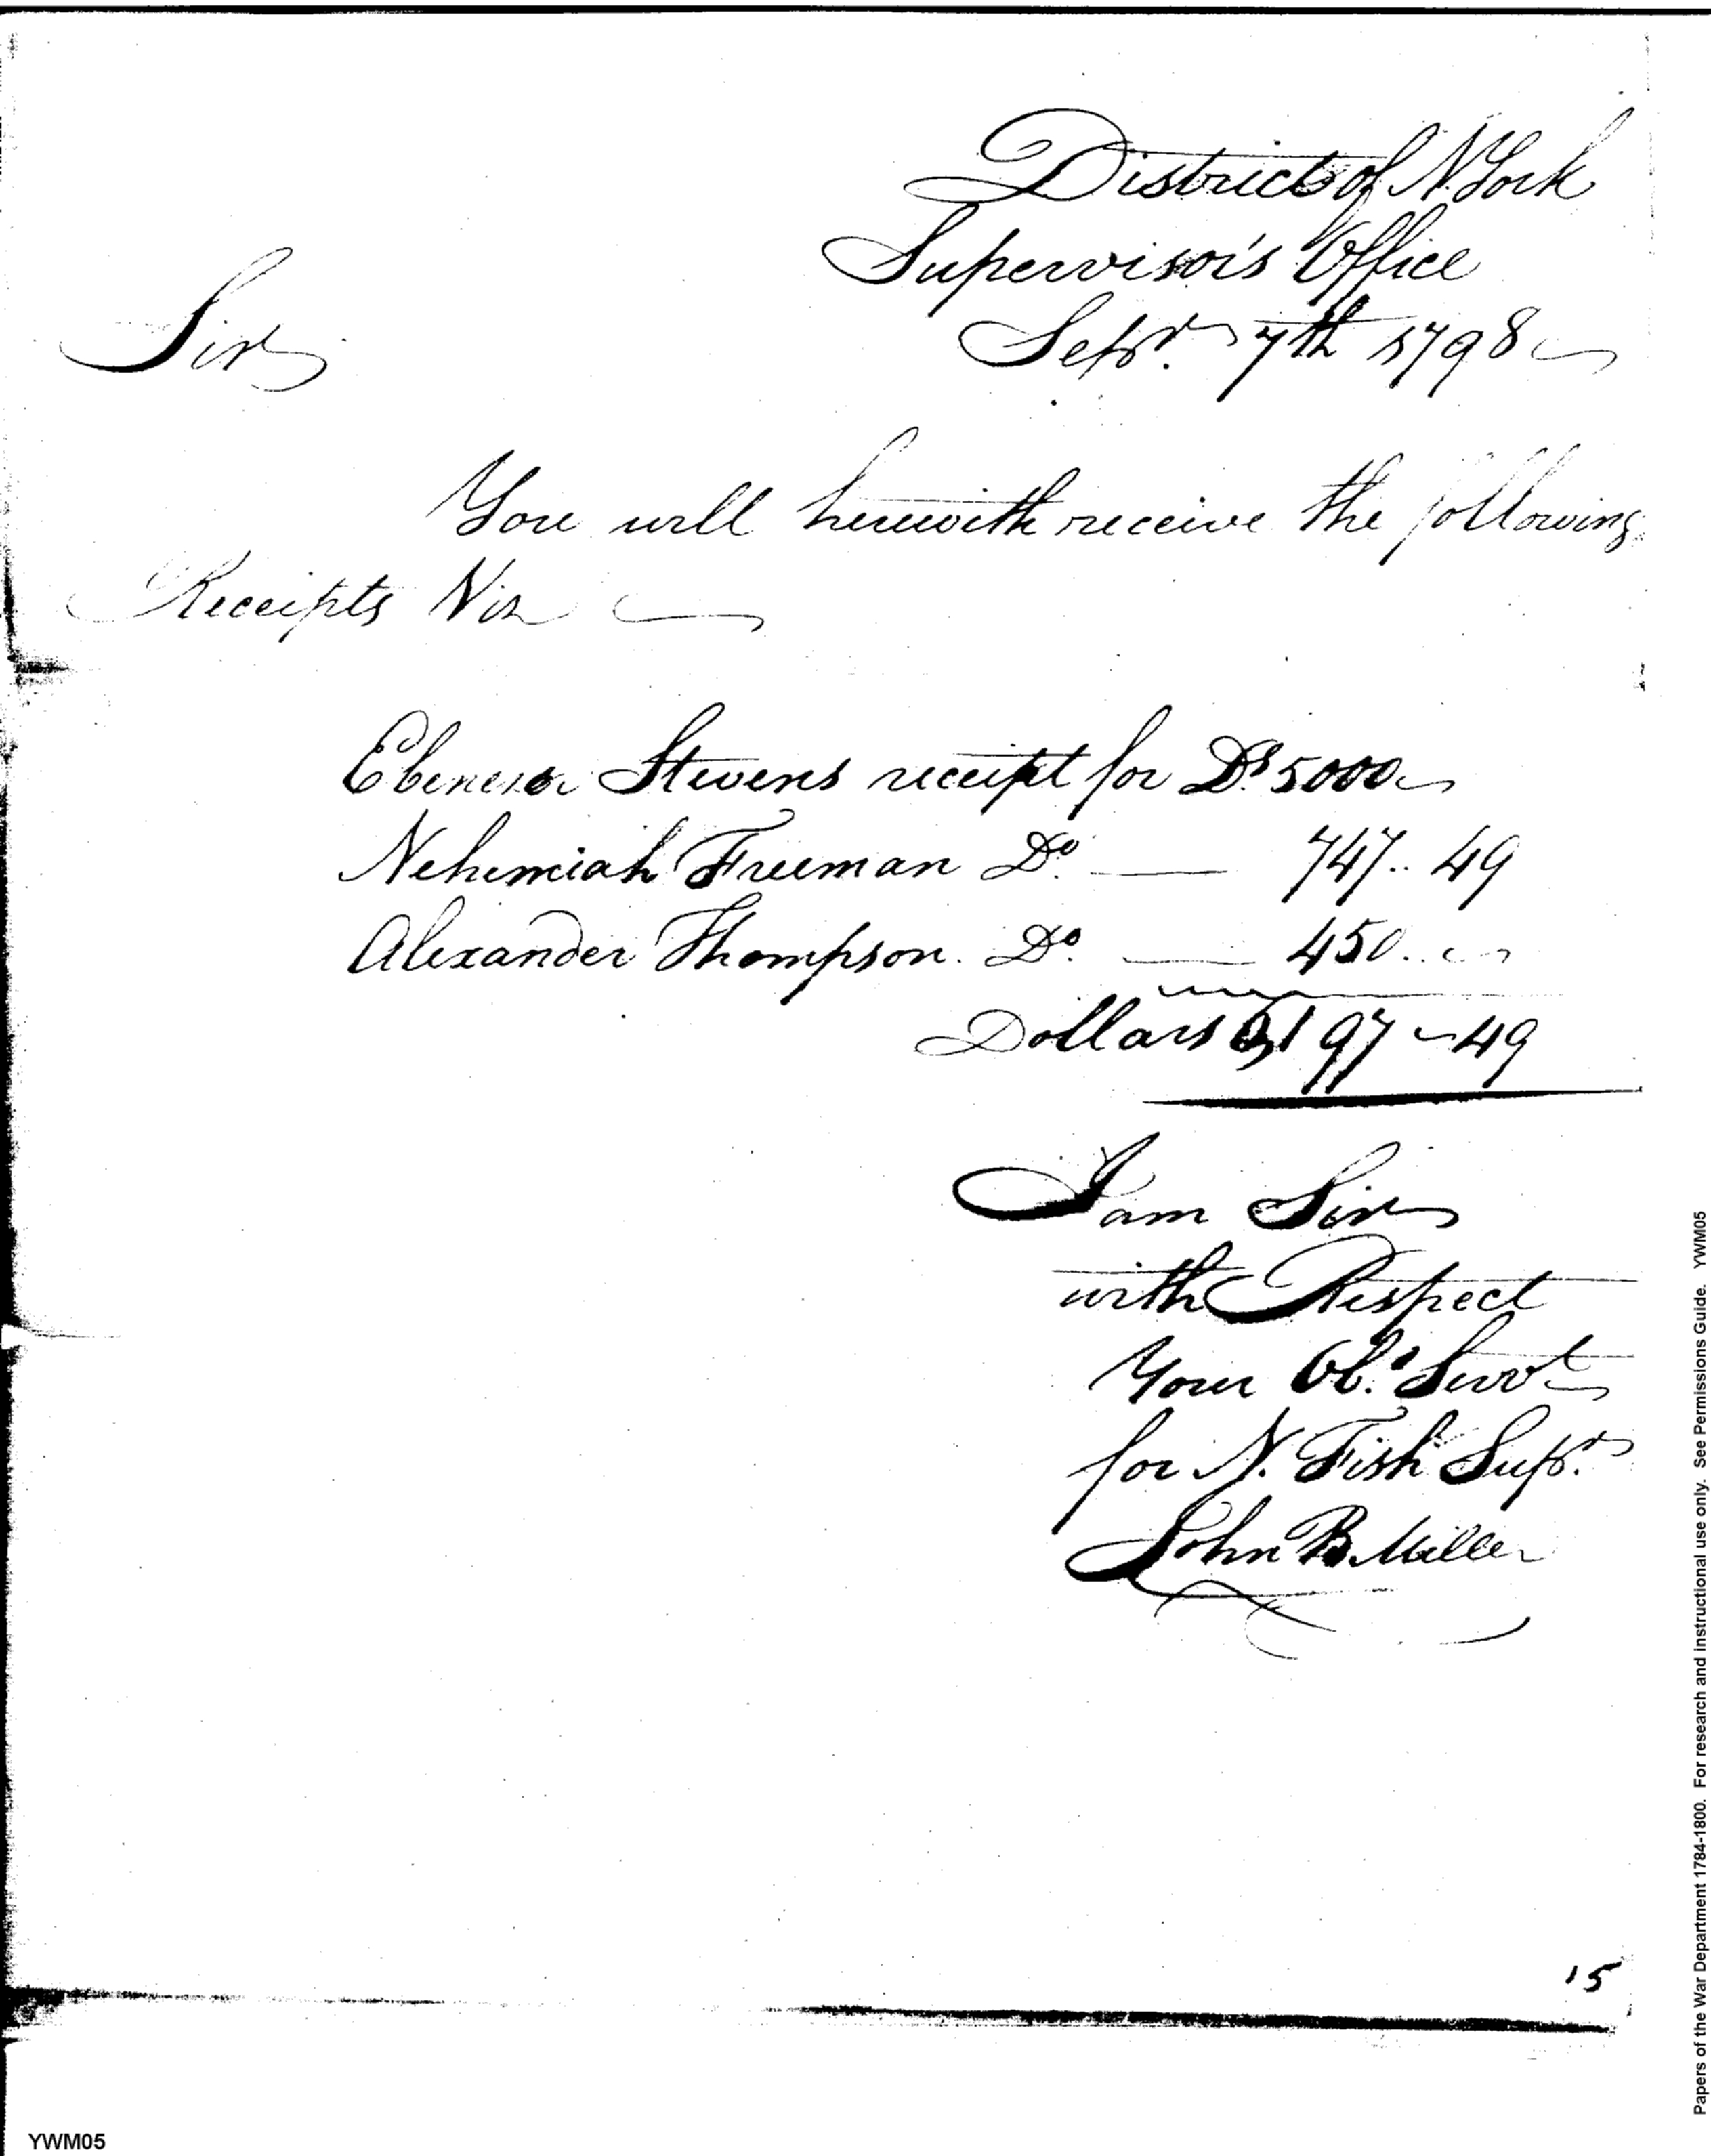 District of N York
Supervisor's Office
Sepr. 7th 1798
Sir
You will herewith receive the following
Receipts Viz
Ebenezer Stevens receipt for Ds. 5000
Nehemiah Freeman Do. — 747.. 49
Alexander Thompson. Do. — 450..
Dollars 6197 ~ 49
I am Sir
with Respect
Your Ob. Servt
for N. Fish Supr.
John B Miller
15
YWM05
Papers of the War Department 1784-1800. For research and instructional use only. See Permissions Guide. YWM05